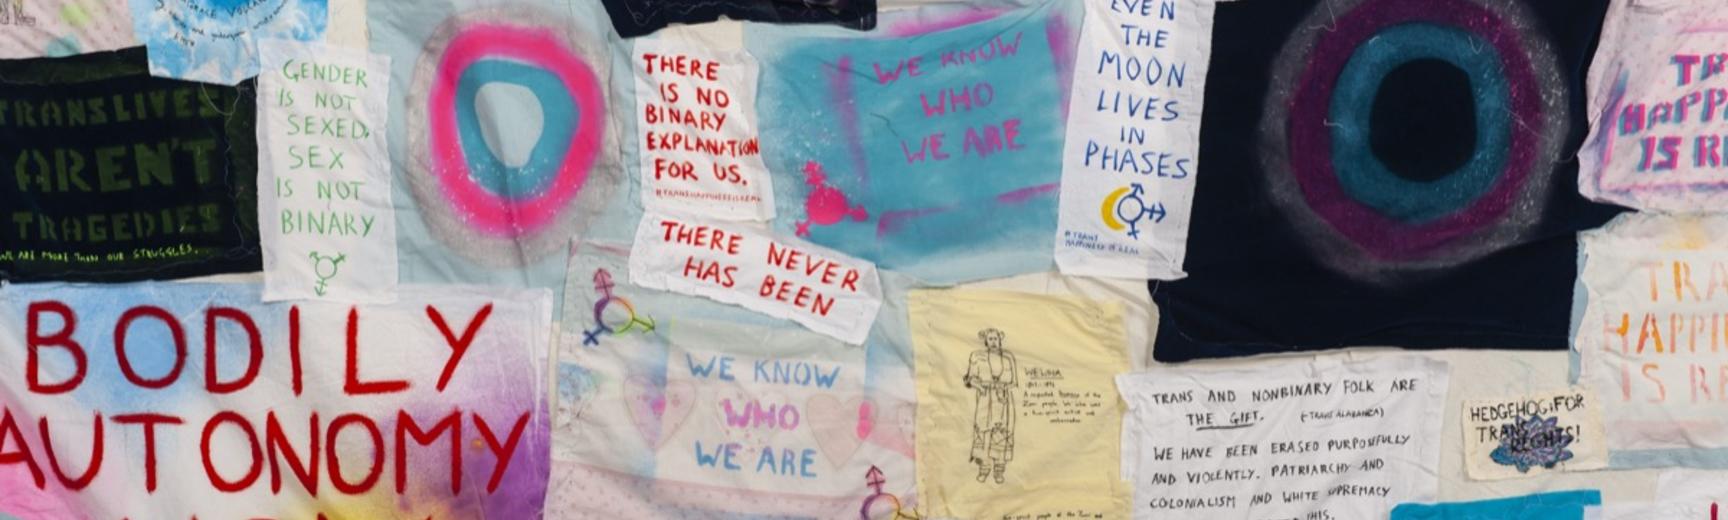 TRANS LIVES
AREN'T
TRAGEDIES
WE ARE MORE THAN OUR STRUGGLES.
GENDER
IS NOT
SEXED,
SEX
IS NOT
BINARY
THERE
IS NO
BINARY
EXPLANATION
FOR US.
#TRANSHAPPINESSISREAL
THERE NEVER
HAS BEEN
WE KNOW
WHO
WE ARE
EVEN
THE
MOON
LIVES
IN
PHASES
#TRANS
HAPPINESS IS REAL
BODILY
AUTONOMY
WE KNOW
WHO
WE ARE
TRANS AND NONBINARY FOLK ARE
THE GIFT.
WE HAVE BEEN ERASED PURPOSEFULLY
AND VIOLENTLY. PATRIARCHY AND
COLONIALISM AND WHITE SUPREMACY
THIS.
HEDGEHOGS FOR
TRANS
RIGHTS!
TR
HAPP
IS R
TRA
HAPPI
IS RE